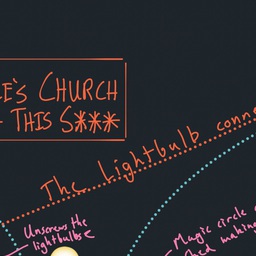 CHURCH
THIS S***
The Lightbulb
Unscrews the
lightbulbs
Magic circle
making